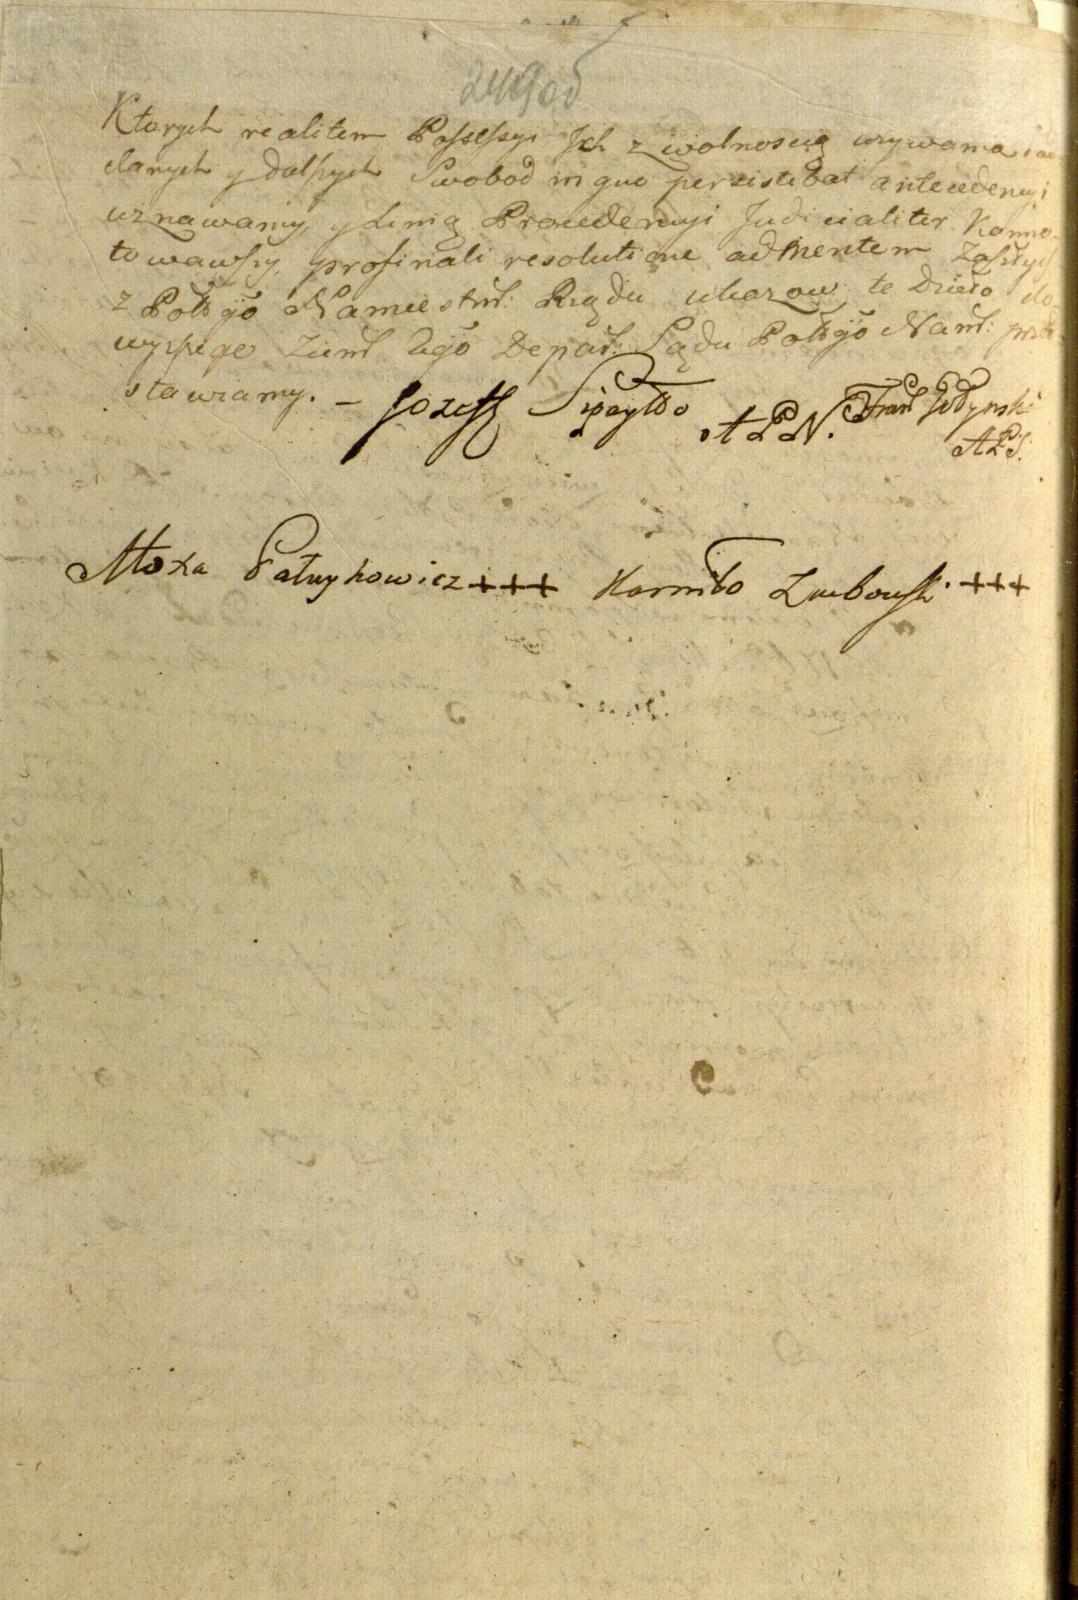 249 об
Ktorych realitem Possessyi Jch z wolnoscią uzywania
danych y dalszych Swobod in quo perzistebat antecedencyi
uznawamy y Linią Procedencyi Judicialiter Konno-
towawszy, pro finali resolutione ad Mentem Zaszłych
z Połłgo Namiestnł: Rządu ukazow, te Dzieło do
wyższego Ziemł 2go Depał: Sądu Połłgo Namł: przed
stawiamy. – Jozeff Sipayłło APN. Franł Jodynski
APS.
Moxa Patuykowicz +++ Harniło Zmbowsk. +++